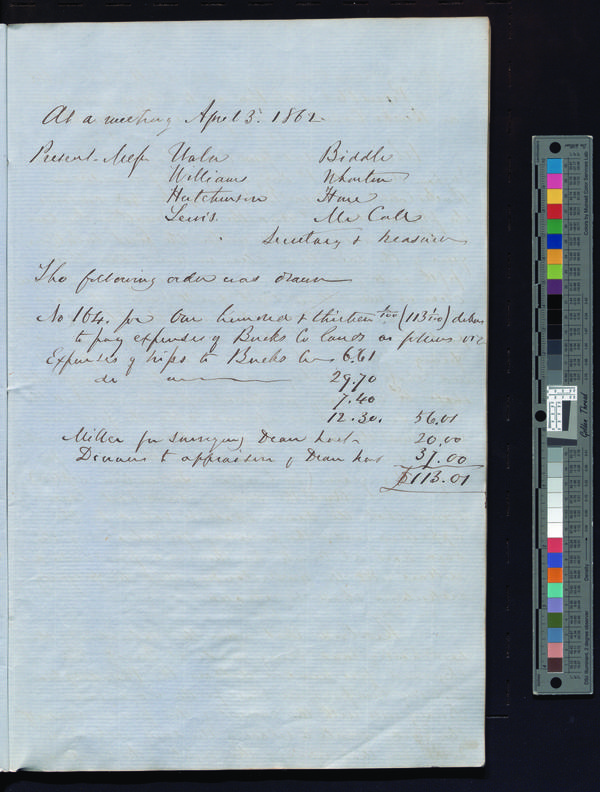 At a meeting April 3d. 1862
Present Messrs Waln Biddle
Williams Wharton
Hutchinson Hare
Lewis Mc Call
Secretary & Treasurer
The following order was drawn
No 164. for One hundred & thirteen 1/100 (113 1/100) dollars
to pay expenses of Bucks Co lands as follows viz
Expenses of trips to Bucks Co 6.61
do " 29.70
7.40
12.30. 56.01
Miller for surveying Dean tract 20.00
to appraisers of Dean tract 37.00
$113.01
Golden Thread